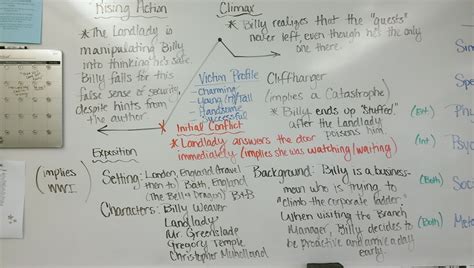 Rising Action
* The Landlady is
manipulating Billy
into thinking he's safe.
Billy falls for this
false sense of security
despite hints from
the author.
Climax
* Billy realizes that the "guests"
never left even though he's the only
one there.
Victim Profile
- Charming
- Young
- Handsome
- Successful
Cliffhanger
(implies a Catastrophe)
* Billy ends up "stuffed"
after the Landlady
poisons him.
* Initial Conflict
* Landlady answers the door
immediately (implies she was watching/waiting)
Exposition
(implies
WWII)
Setting: London, England (travel
then to) Bath, England
(The Bell & Dragon) B+B
Characters: Billy Weaver
Landlady
Mr. Greenslade
Gregory Temple
Christopher Mulholland
Background: Billy is a business-
man who is trying to
"climb the corporate ladder."
When visiting the Branch
Manager, Billy decides to
be proactive and arrive a day
early.
(Ext.)
(Int.)
(Both)
(Both)